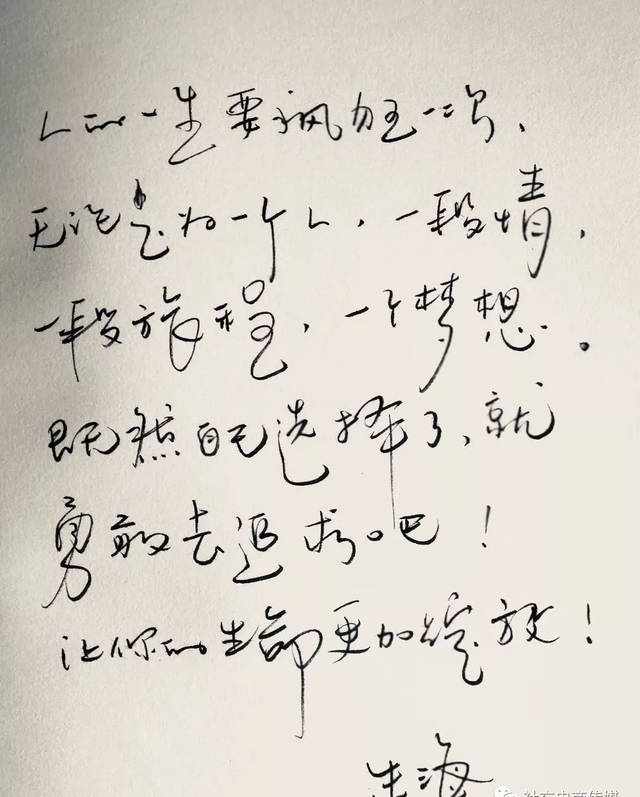 人的一生要疯狂一次、
无论是为一个人，一段情，
一段旅程，一个梦想。
既然自己选择了，就
勇敢去追求吧！
让你的生命更加绽放！